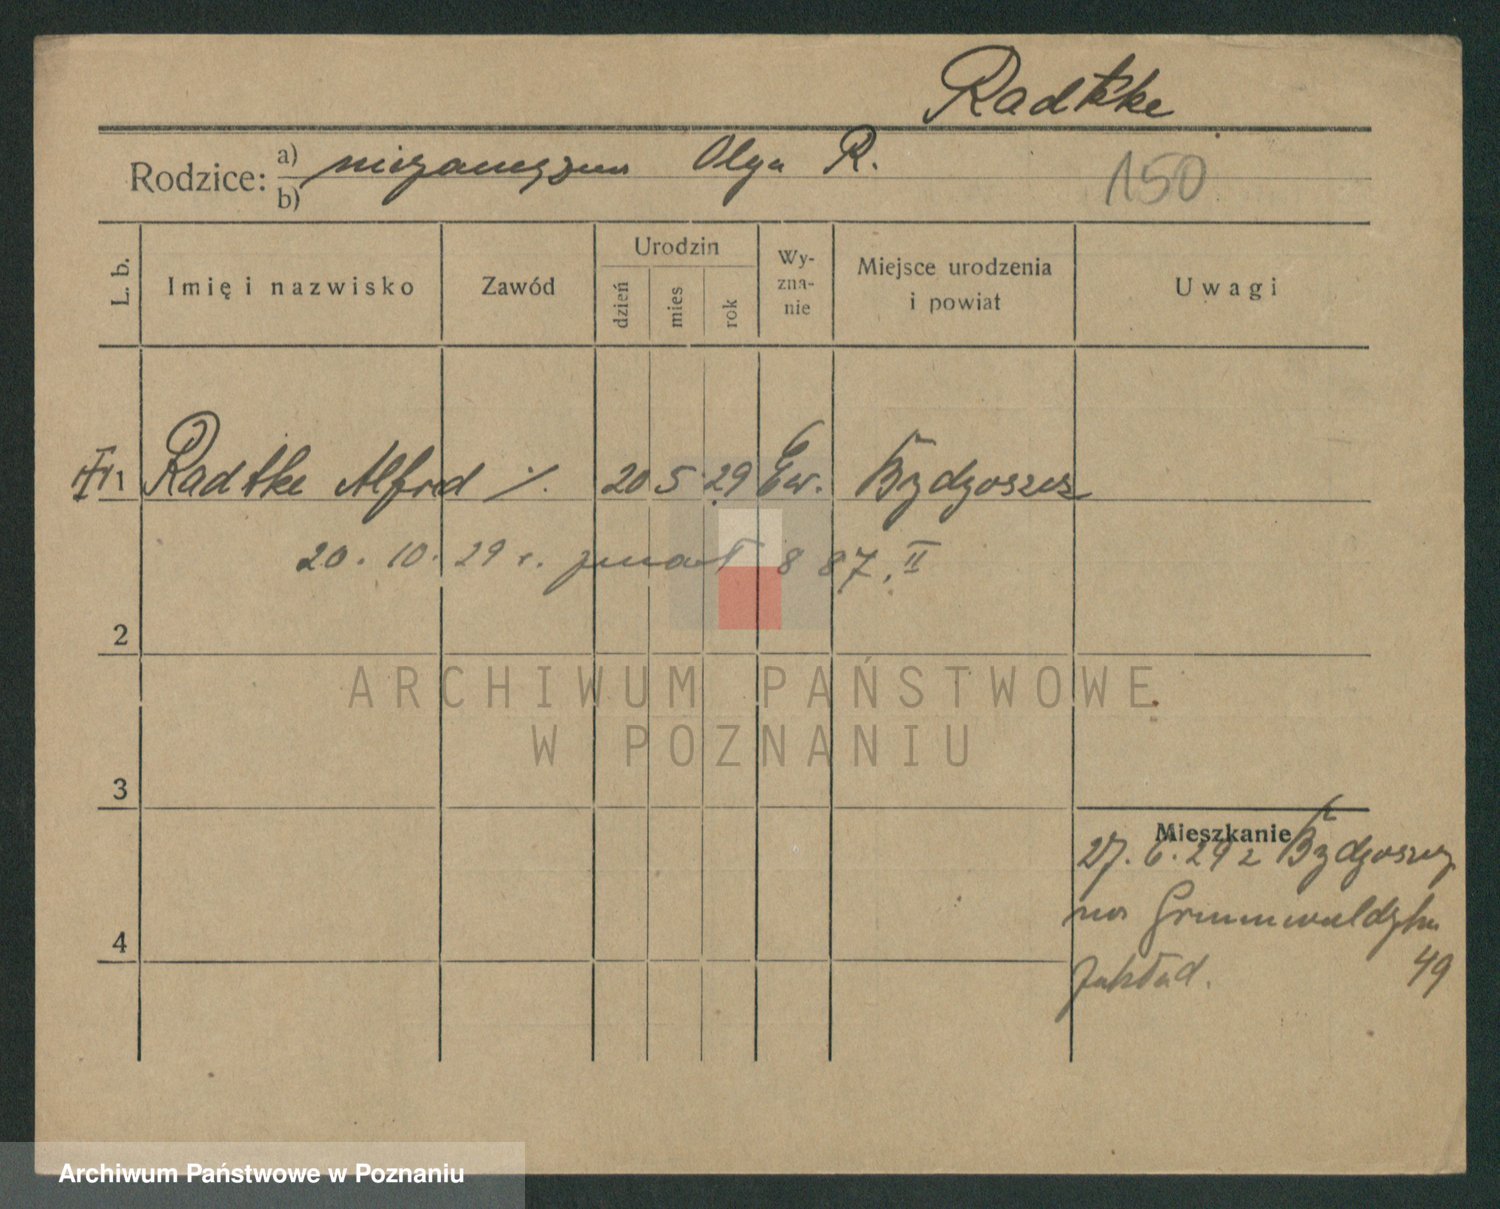 Radtke
Rodzice: a) niezamężna Olga R.
b)
150
L. b.
Imię i nazwisko
Zawód
Urodzin
dzień
mies
rok
Wy-
zna-
nie
Miejsce urodzenia
i powiat
Uwagi
1 Radtke Alfred ·/. 20 5 29 Ew. Bydgoszcz
20. 10. 29 r. zmarł 887. II
2
3
4
Mieszkanie
27. 6. 29 z Bydgoszczy
na Grunwaldzka
zakład. 49
ARCHIWUM PAŃSTWOWE
W POZNANIU
Archiwum Państwowe w Poznaniu